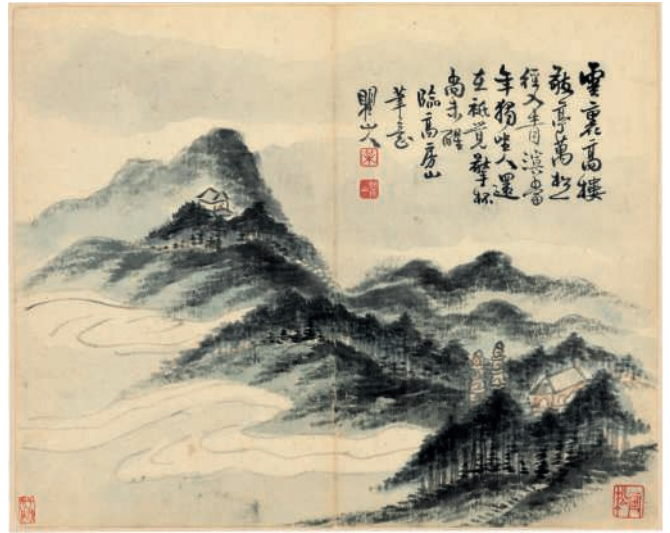 雲裏高樓
敬亭萬松一
徑入青溟當
年獨坐人還
在祗覺擎杯
尚未醒
臨高房山
筆意
瞿山人